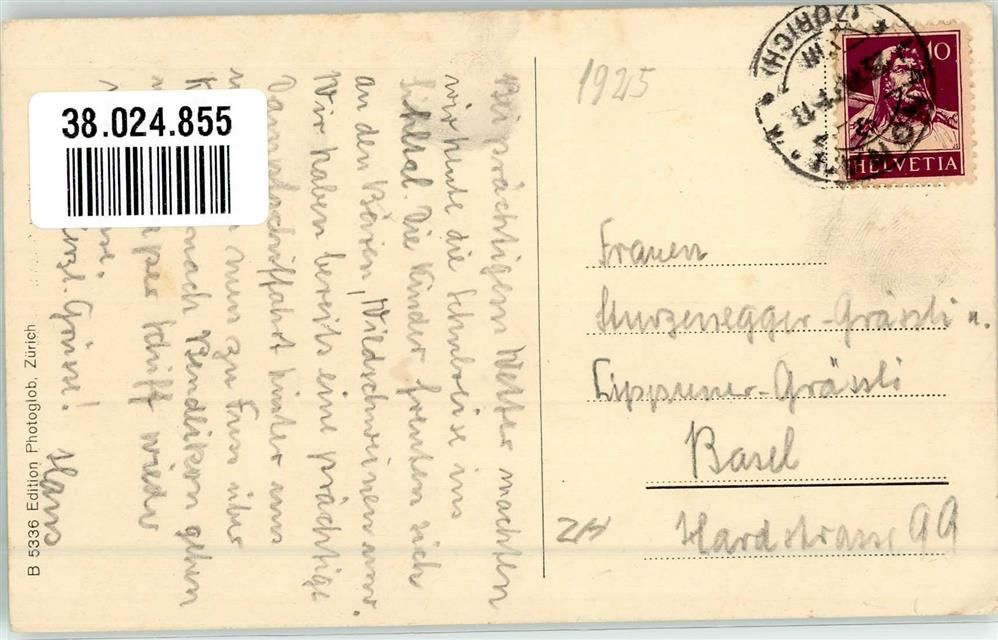 Bei prächtigem Wetter machten
wir heute die Schulreise ins
Sihltal. Die Kinder freuten sich
an den Bären, Wildschweinen usw.
Wir haben bereits eine prächtige
Dampfschiffahrt hinter uns
nun zu Fuss über
nach Bendlikon gehen
per Schiff wieder
Herzl. Grüsse!
Hans
38.024.855
B 5336 Edition Photoglob, Zürich
1925
(ZÜRICH)
III
10
HELVETIA
Frauen
Sturzenegger-Grässli u.
Lippuner-Grässli
Basel
Hardstrasse 99
ZH